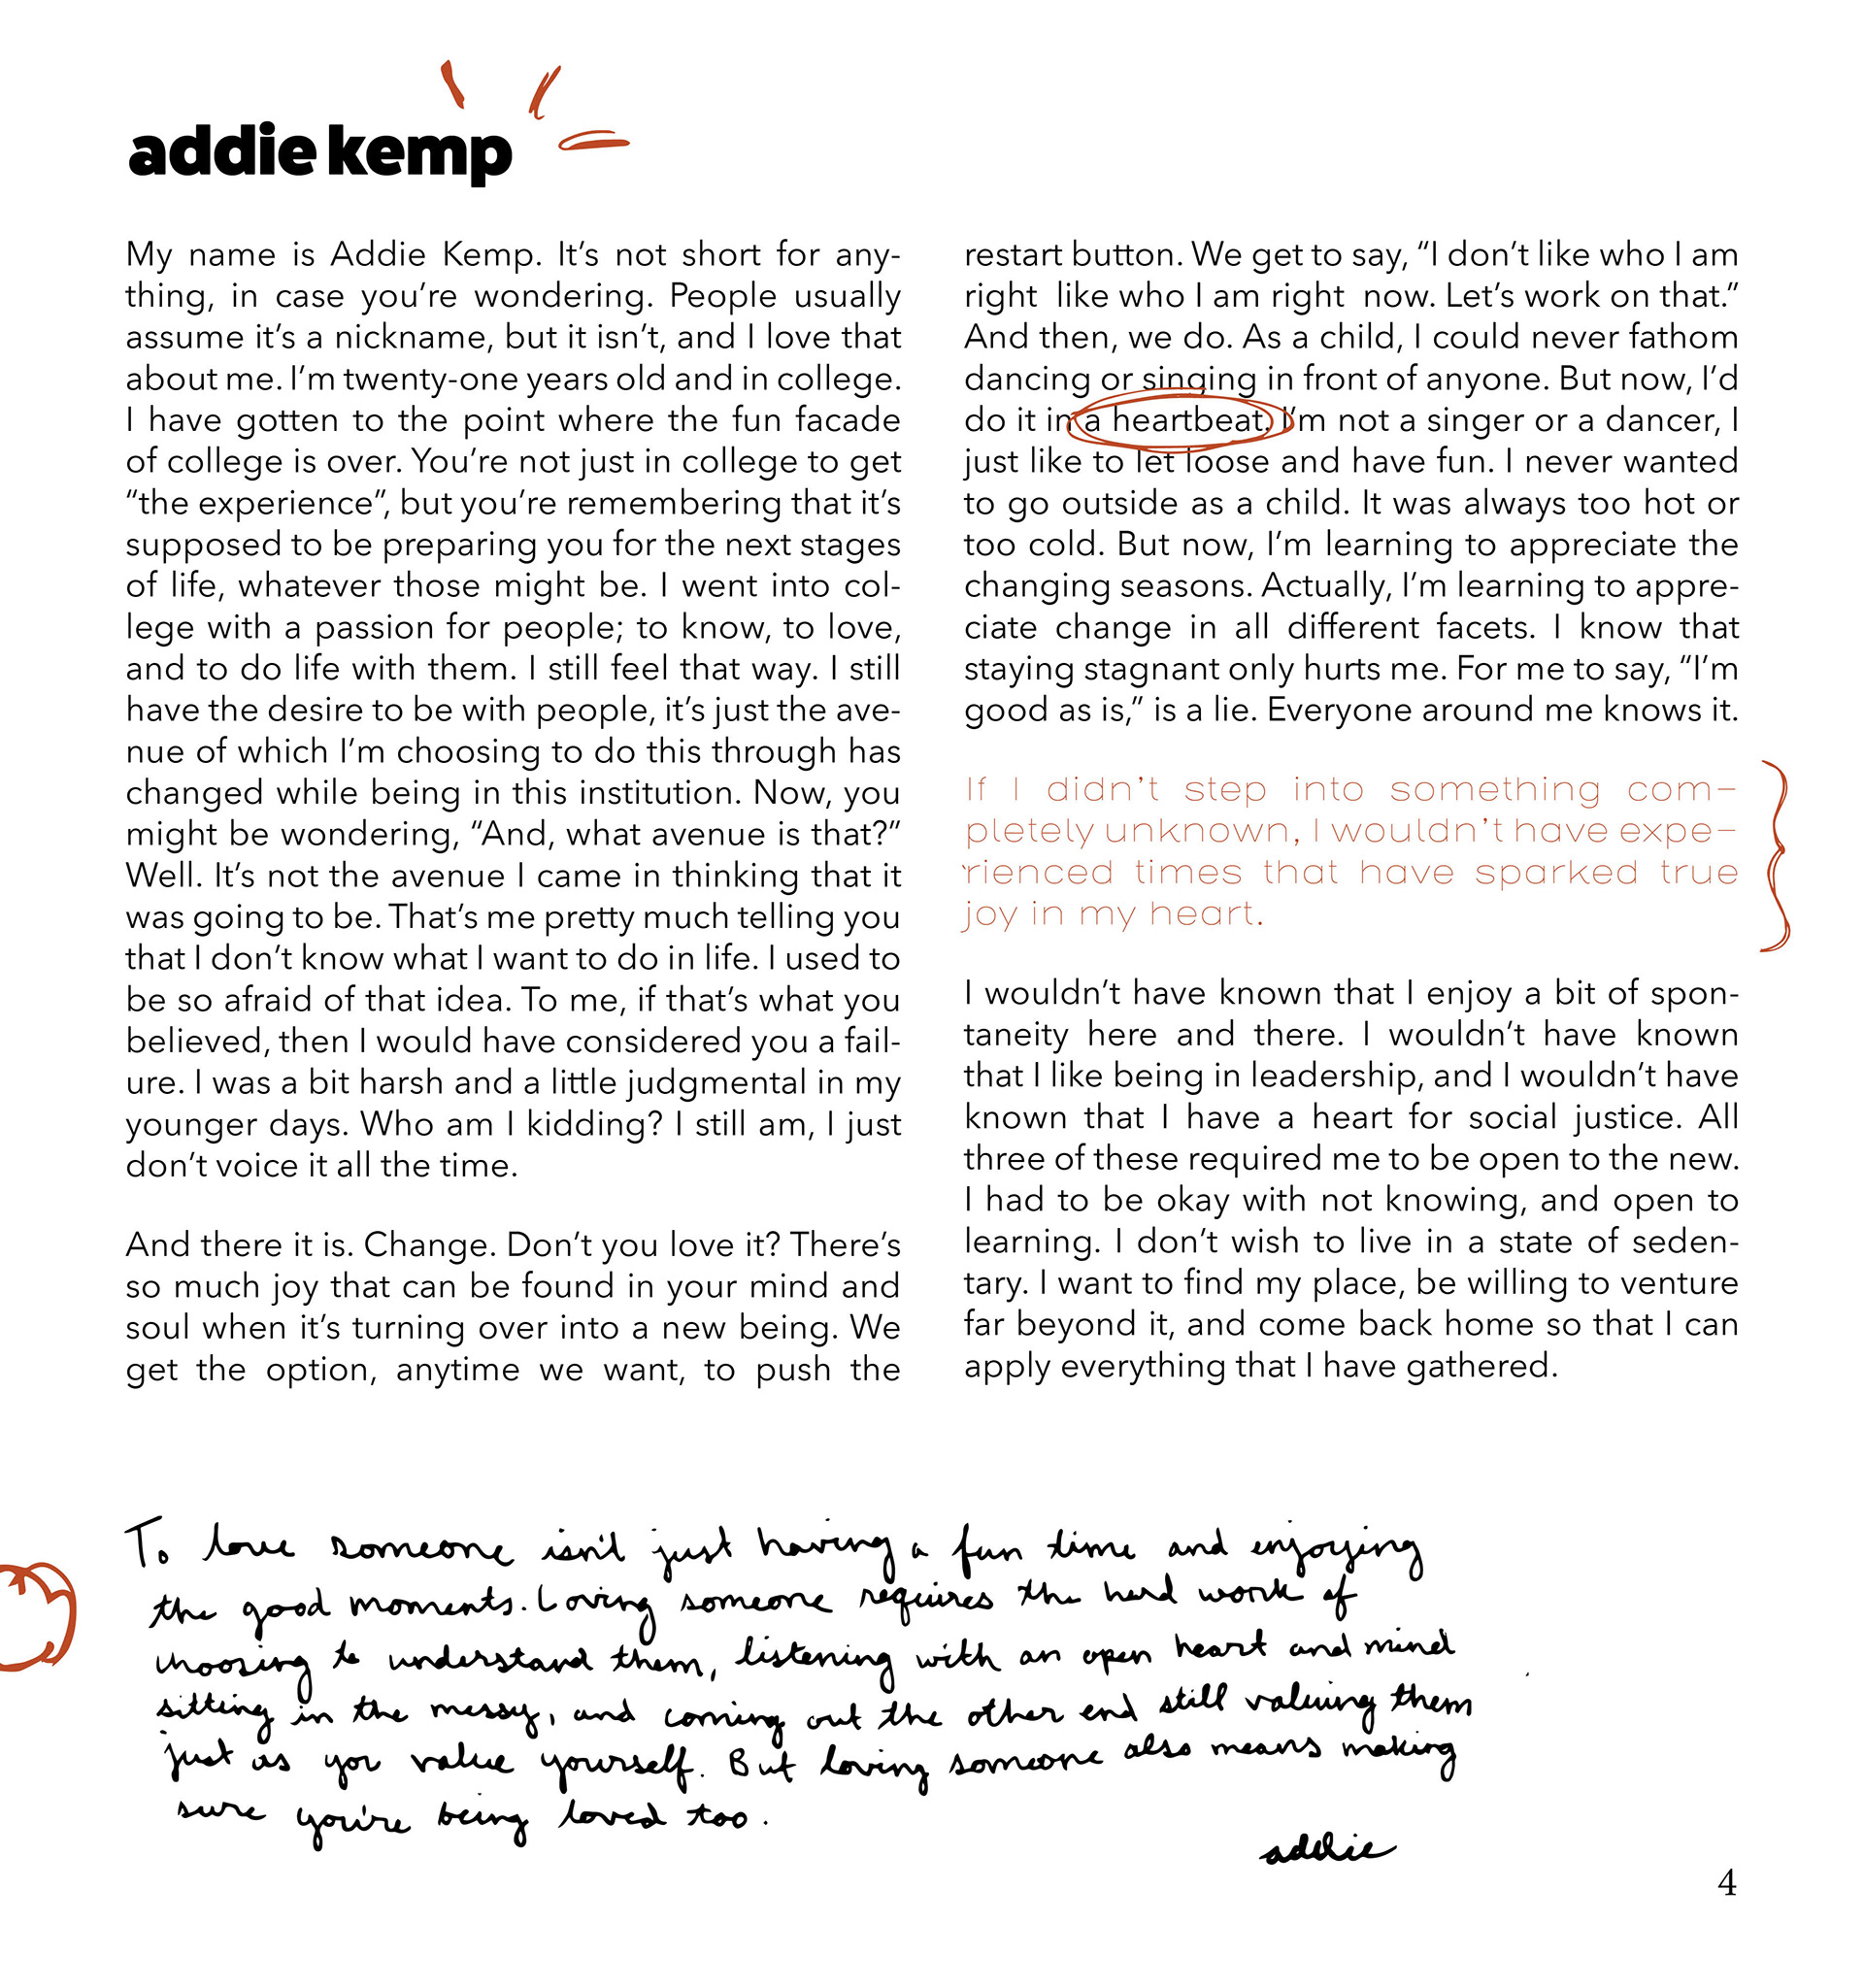 addie kemp
My name is Addie Kemp. It’s not short for any-
thing, in case you’re wondering. People usually
assume it’s a nickname, but it isn’t, and I love that
about me. I’m twenty-one years old and in college.
I have gotten to the point where the fun facade
of college is over. You’re not just in college to get
“the experience”, but you’re remembering that it’s
supposed to be preparing you for the next stages
of life, whatever those might be. I went into col-
lege with a passion for people; to know, to love,
and to do life with them. I still feel that way. I still
have the desire to be with people, it’s just the ave-
nue of which I’m choosing to do this through has
changed while being in this institution. Now, you
might be wondering, “And, what avenue is that?”
Well. It’s not the avenue I came in thinking that it
was going to be. That’s me pretty much telling you
that I don’t know what I want to do in life. I used to
be so afraid of that idea. To me, if that’s what you
believed, then I would have considered you a fail-
ure. I was a bit harsh and a little judgmental in my
younger days. Who am I kidding? I still am, I just
don’t voice it all the time.
And there it is. Change. Don’t you love it? There’s
so much joy that can be found in your mind and
soul when it’s turning over into a new being. We
get the option, anytime we want, to push the
restart button. We get to say, “I don’t like who I am
right like who I am right now. Let’s work on that.”
And then, we do. As a child, I could never fathom
dancing or singing in front of anyone. But now, I’d
do it in a heartbeat. I’m not a singer or a dancer, I
just like to let loose and have fun. I never wanted
to go outside as a child. It was always too hot or
too cold. But now, I’m learning to appreciate the
changing seasons. Actually, I’m learning to appre-
ciate change in all different facets. I know that
staying stagnant only hurts me. For me to say, “I’m
good as is,” is a lie. Everyone around me knows it.
If I didn’t step into something com-
pletely unknown, I wouldn’t have expe-
rienced times that have sparked true
joy in my heart.
I wouldn’t have known that I enjoy a bit of spon-
taneity here and there. I wouldn’t have known
that I like being in leadership, and I wouldn’t have
known that I have a heart for social justice. All
three of these required me to be open to the new.
I had to be okay with not knowing, and open to
learning. I don’t wish to live in a state of seden-
tary. I want to find my place, be willing to venture
far beyond it, and come back home so that I can
apply everything that I have gathered.
To love someone isn't just having a fun time and enjoying
the good moments. Loving someone requires the hard work of
choosing to understand them, listening with an open heart and mind
sitting in the messy, and coming out the other end still valuing them
just as you value yourself. But loving someone also means making
sure you're being loved too.
addie
4